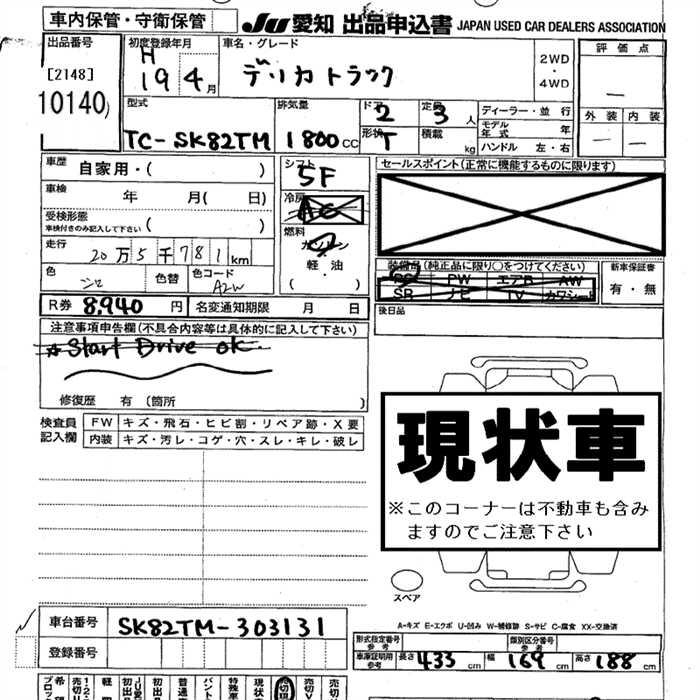 車内保管・守衛保管
JU 愛知 出品申込書 JAPAN USED CAR DEALERS ASSOCIATION
出品番号
[2148]
10140
初度登録年月
H
19 4月
車名・グレード
デリカトラック
2WD
・
4WD
評価点
外装 内装
型式
TC-SK82TM
排気量
1800cc
ドア
2
定員
3人
形状
T
積載
kg
ディーラー・並行
モデル年式 年
ハンドル 左・右
車歴
自家用・( )
車検
年 月( 日)
受検形態
車検付きのみ記入して下さい ( )
走行
20万5千781km
色
シロ
色替
色コード
A2W
シフト
5F
冷房
AC
燃料
ガソリン
・
軽油
・
( )
セールスポイント(正常に機能するものに限ります)
装備品(純正品に限り○をつけてください)
PS PW エアB AW
SR ナビ TV カワシート
新車保証書
有・無
R券 8,940円 名変通知期限 月 日
後日品
注意事項申告欄(不具合内容等は具体的に記入して下さい)
☆Start Drive ok.
修復歴 有(箇所 )
検査員
記入欄
FW キズ・飛石・ヒビ割・リペア跡・X要
内装 キズ・汚レ・コゲ・穴・スレ・キレ・破レ
現状車
※このコーナーは不動車も含み
ますのでご注意下さい
スペア
A-キズ E-エクボ U-凹み W-補修跡 S-サビ C-腐食 XX-交換済
車台番号 SK82TM-303131
登録番号
形式指定番号
参考
類別区分番号
参考
車庫証明用
参考
長さ 433cm 幅 169cm 高さ 188cm